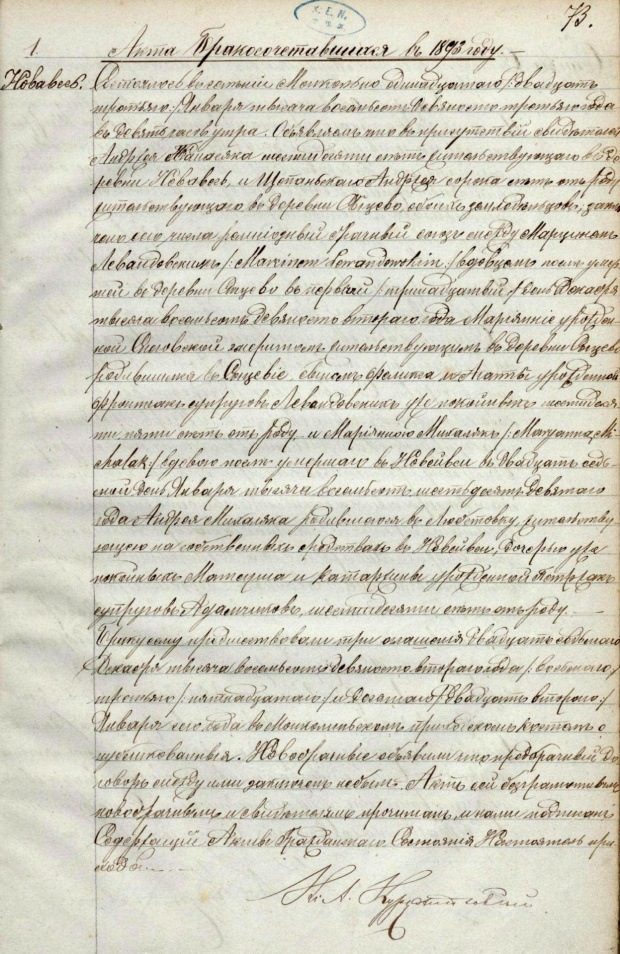 73.
1. Акта Бракосочетавшихся въ 1893 году. —
Невавесь. Состоялось въ селеніи одинадцатаго /:двадцать
третьяго:/ Января тысяча восемьсотъ девяносто третьяго года
въ девять часовъ утра. Объявляемъ что въ присутствіи свидѣтелей
Андрея шестидесяти пяти жительствующаго въ де
ревни Невавесь, и Щепаньскаго Андрея сорока лѣтъ отъ роду
жительствующаго въ деревни обоихъ земледѣльцовъ, заклю
чено сего числа религіозный брачный союзъ между Марциномъ
Левандовскимъ /:Marcinem Lewandowskim:/ вдовцомъ послѣ умер
шей въ деревни въ первый /:тринадцатый:/ день Декабря
тысяча восемьсотъ девяносто втораго года Маріянны урожден
ной жительствующимъ въ деревни
родившимся въ сыномъ Феликса и Агаты урожденной
супруговъ Левандовскихъ уже покойныхъ шестидеся
ти пяти лѣтъ отъ роду и Маріянною Михалякъ /:Maryanną Mi-
chalak:/ вдовою послѣ умершаго въ Невейвси въ двадцать седь
мой день Января тысяча восемьсотъ шестьдесятъ девятаго
года Андрея Михаляка родившагося въ жительству
ющею на собственныхъ средствахъ въ Невейвси, дочерью уже
покойныхъ Матеуша и Катаржины урожденной Петр
супруговъ Адамчиковъ, шестидесяти лѣтъ отъ роду. —
Браку сему предшествовали три оглашенія двадцать седьмаго
Декабря тысяча восемьсотъ девяносто втораго года /:восьмаго:/
третьяго /:пятнадцатаго:/ и десятаго /:двадцать втораго:/
Января сего года въ приходскомъ костелѣ о
публикованныя. Новобрачные объявили что предбрачный до
говоръ между ими заключенъ небылъ. Актъ сей безграмотнымъ
новобрачнымъ и свидѣтелямъ прочитанъ, и нами подписанъ
Содержащій Акты Гражданскаго Состоянія Настоятель при
хода —
Кс. А.